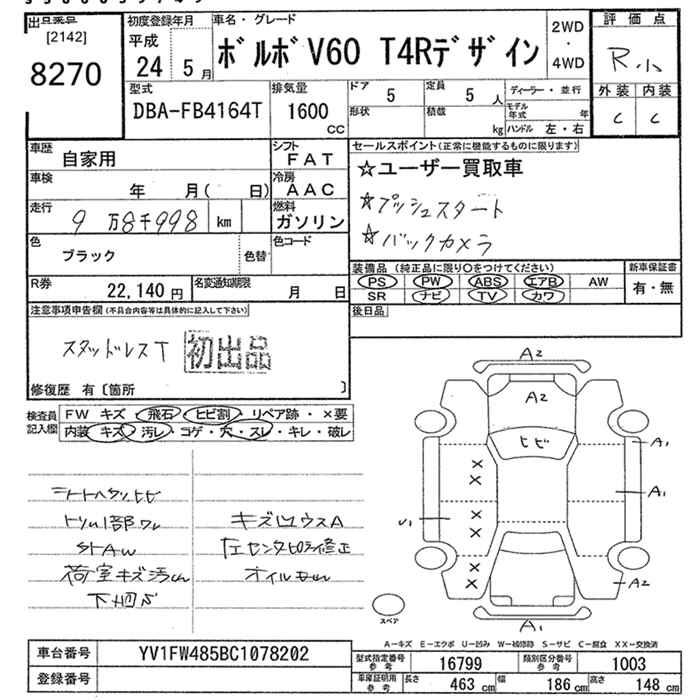 出品番号
[2142]
8270
初度登録年月
平成
24 5月
車名・グレード
ボルボV60 T4Rデザイン
2WD
・
4WD
評価点
R.小
外装 内装
C C
型式
DBA-FB4164T
排気量
1600 CC
ドア
5
形状
定員
5 人
積載
kg
ディーラー・並行
モデル年式 年
ハンドル 左・右
車歴
自家用
シフト
FAT
車検
年 月( 日)
冷房
AAC
走行
9万8千998 km
燃料
ガソリン
色
ブラック
色替
色コード
R券
22,140 円
名変通知期限
月 日
セールスポイント(正常に機能するものに限ります)
☆ユーザー買取車
☆プッシュスタート
☆バックカメラ
装備品 (純正品に限り○をつけてください)
PS PW ABS エアB AW
SR ナビ TV カワ
新車保証書
有・無
後日品
注意事項申告欄(不具合内容等は具体的に記入して下さい)
スタッドレスT
初出品
修復歴 有〔箇所 〕
検査員記入欄
FW キズ・飛石・ヒビ割・リペア跡・×要
内装 キズ・汚レ・コゲ・穴・スレ・キレ・破レ
トリム1部ワレ
キズ凹ウスA
StAw
左センタピラー修正
荷室キズ汚れ
オイルもれ
下回S
A2
A2
ヒビ
A1
A1
U1
A2
A1
スペア
A-キズ E-エクボ U-凹み W-補修跡 S-サビ C-腐食 XX-交換済
車台番号
YV1FW485BC1078202
登録番号
型式指定番号 参考
16799
類別区分番号 参考
1003
車庫証明用 参考
長さ 463 cm
幅 186 cm
高さ 148 cm